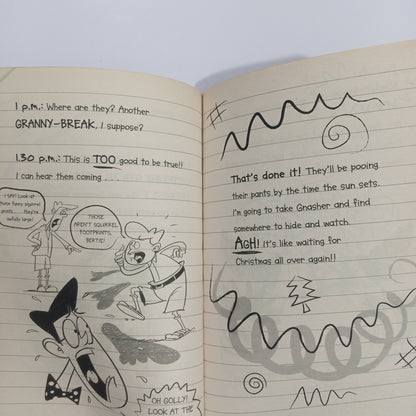 1 p.m.: Where are they? Another
GRANNY-BREAK, I suppose?
1.30 p.m.: This is TOO good to be true!!
I can hear them coming . . .
I say! Look at
those funny squirrel
prints . . . they're
awfully large!
THOSE
AREN'T SQUIRREL
FOOTPRINTS,
BERTIE!
OH GOLLY!
LOOK AT THE
That's done it! They'll be pooing
their pants by the time the sun sets.
I'm going to take Gnasher and find
somewhere to hide and watch.
AGH! It's like waiting for
Christmas all over again!!